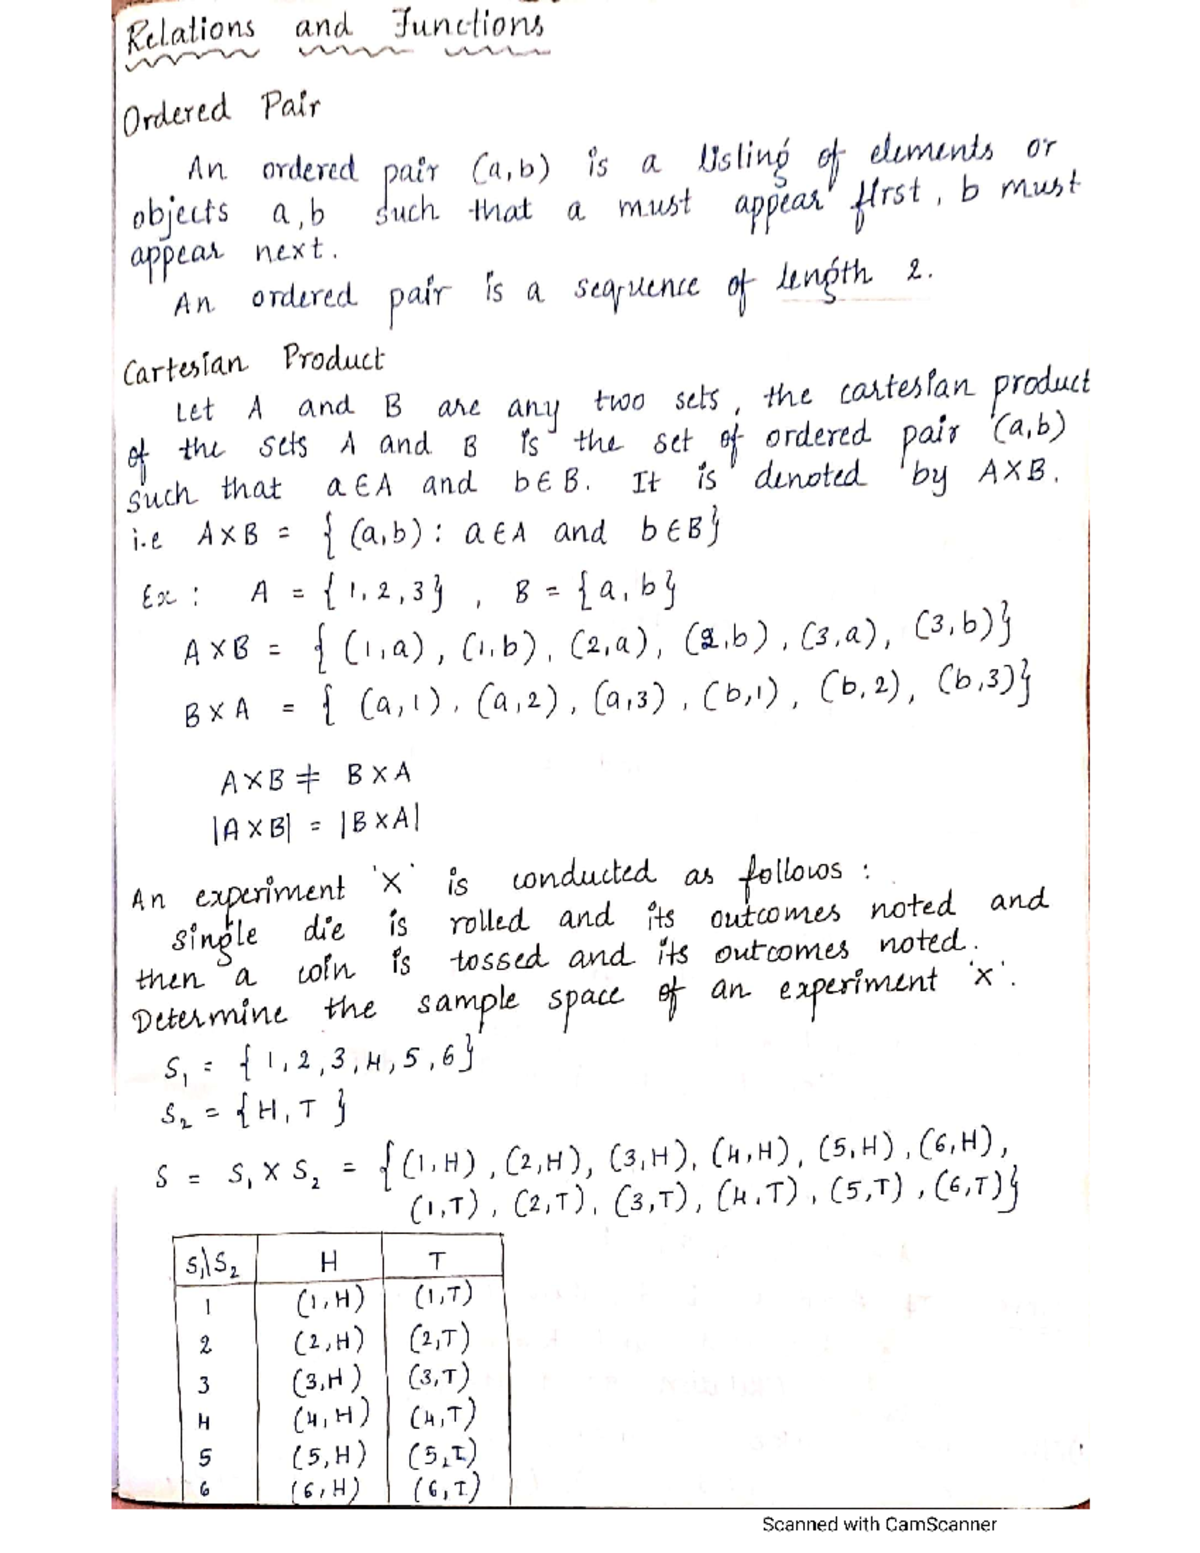 Relations and Functions
Ordered Pair
An ordered pair (a,b) is a listing of elements or
objects a,b such that a must appear first, b must
appear next.
An ordered pair is a sequence of length 2.
Cartesian Product
Let A and B are any two sets, the cartesian product
of the sets A and B is the set of ordered pair (a,b)
such that a∈A and b∈B. It is denoted by A×B.
i.e A×B = { (a,b) : a∈A and b∈B}
Ex : A = {1,2,3} , B = {a,b}
A×B = { (1,a), (1,b), (2,a), (2,b), (3,a), (3,b)}
B×A = { (a,1), (a,2), (a,3), (b,1), (b,2), (b,3)}
A×B ≠ B×A
|A×B| = |B×A|
An experiment 'X' is conducted as follows :
single die is rolled and its outcomes noted and
then a coin is tossed and its outcomes noted.
Determine the sample space of an experiment 'X'.
S₁ = {1,2,3,4,5,6}
S₂ = {H,T}
S = S₁ × S₂ = {(1,H), (2,H), (3,H), (4,H), (5,H), (6,H),
(1,T), (2,T), (3,T), (4,T), (5,T), (6,T)}
S₁\S₂ H T
1 (1,H) (1,T)
2 (2,H) (2,T)
3 (3,H) (3,T)
4 (4,H) (4,T)
5 (5,H) (5,T)
6 (6,H) (6,T)
Scanned with CamScanner